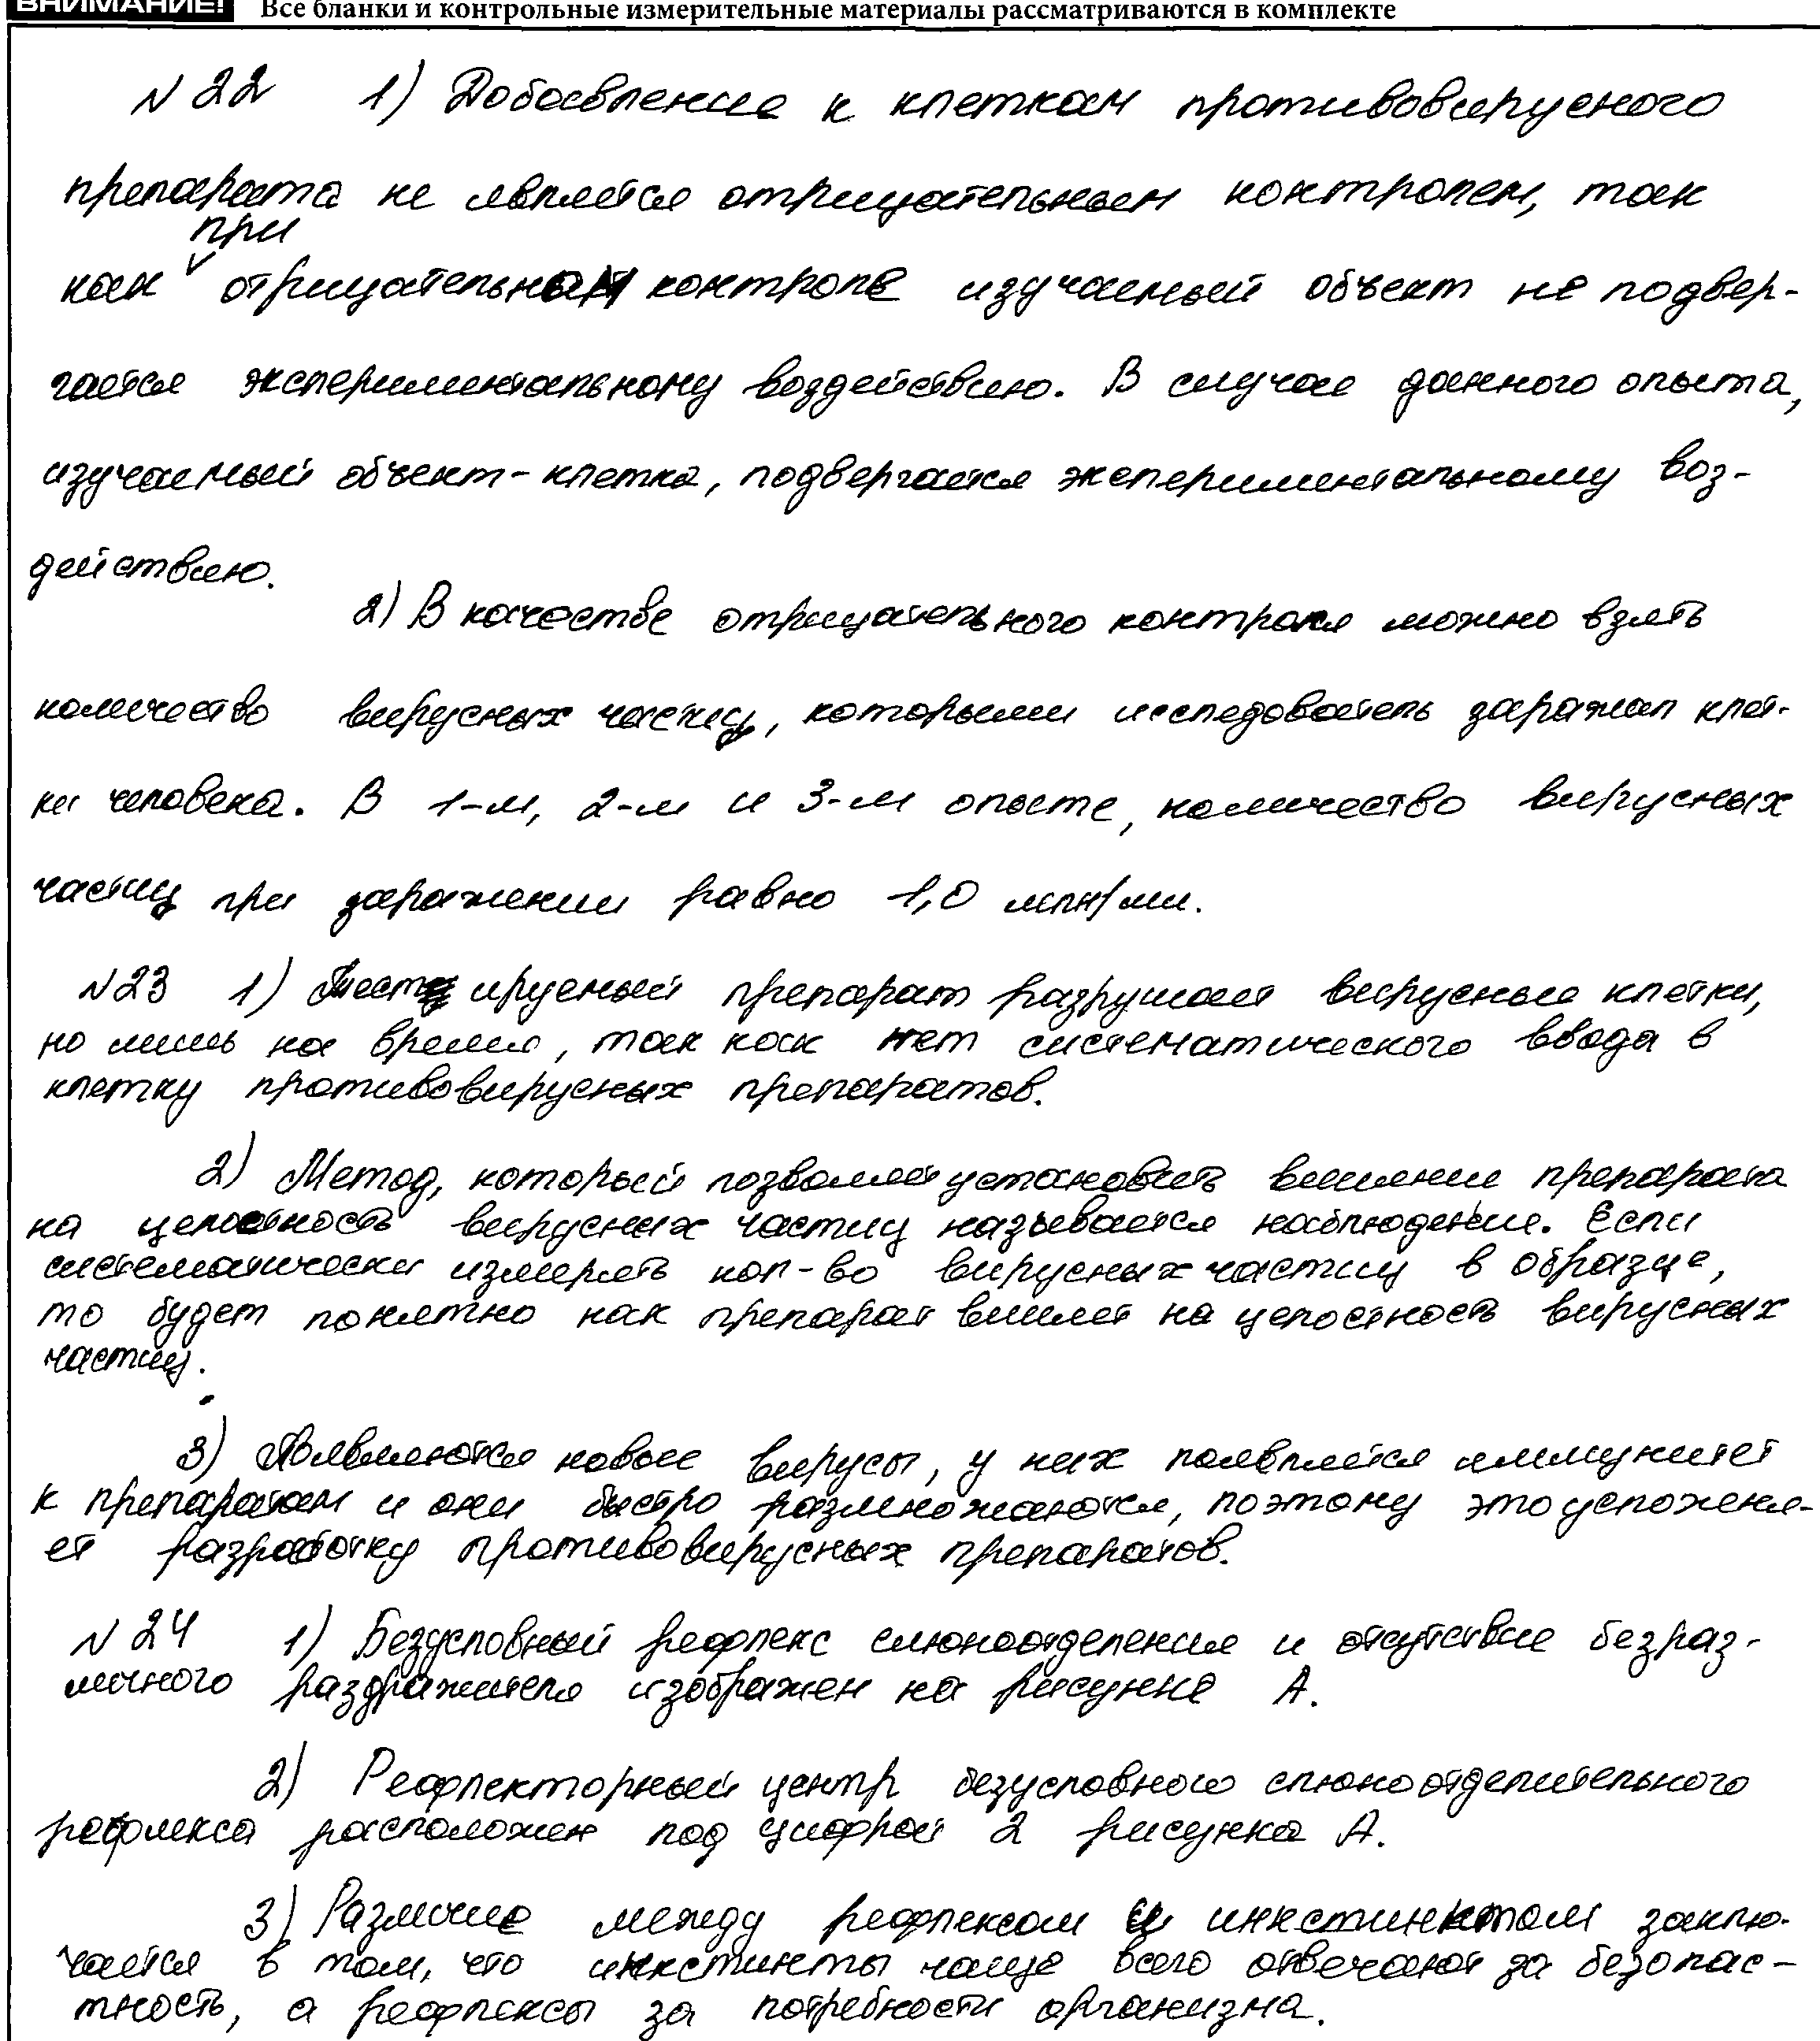 ВНИМАНИЕ! Все бланки и контрольные измерительные материалы рассматриваются в комплекте
№ 22 1) Добавление к клеткам противовирусного
препарата не является отрицательным контролем, так
при
как отрицательном контроле изучаемый объект не подвер-
гается экспериментальному воздействию. В случае данного опыта,
изучаемый объект - клетка, подвергается экспериментальному воз-
действию.
2) В качестве отрицательного контроля можно взять
количество вирусных частиц, которыми исследователь заражал клет-
ки человека. В 1-м, 2-м и 3-м опыте, количество вирусных
частиц при заражении равно 1,0 млн/мл.
№23 1) Тестируемый препарат разрушает вирусные клетки,
но лишь на время, так как нет систематического ввода в
клетку противовирусных препаратов.
2) Метод, который позволяет установить влияние препарата
на целостность вирусных частиц называется наблюдение. Если
систематически измерять кол-во вирусных частиц в образце,
то будет понятно как препарат влияет на целостность вирусных
частиц.
3) Появляются новые вирусы, у них появляется иммунитет
к препаратам и они быстро размножаются, поэтому это усложня-
ет разработку противовирусных препаратов.
№ 24 1) Безусловный рефлекс слюноотделения и отсутствие безраз-
личного раздражителя изображен на рисунке А.
2) Рефлекторный центр безусловного слюноотделительного
рефлекса расположен под цифрой 2 рисунка А.
3) Различие между рефлексом и инкстинктом заклю-
чается в том, что инкстинкты чаще всего отвечают за безопас-
тность, а рефлексы за потребности организма.